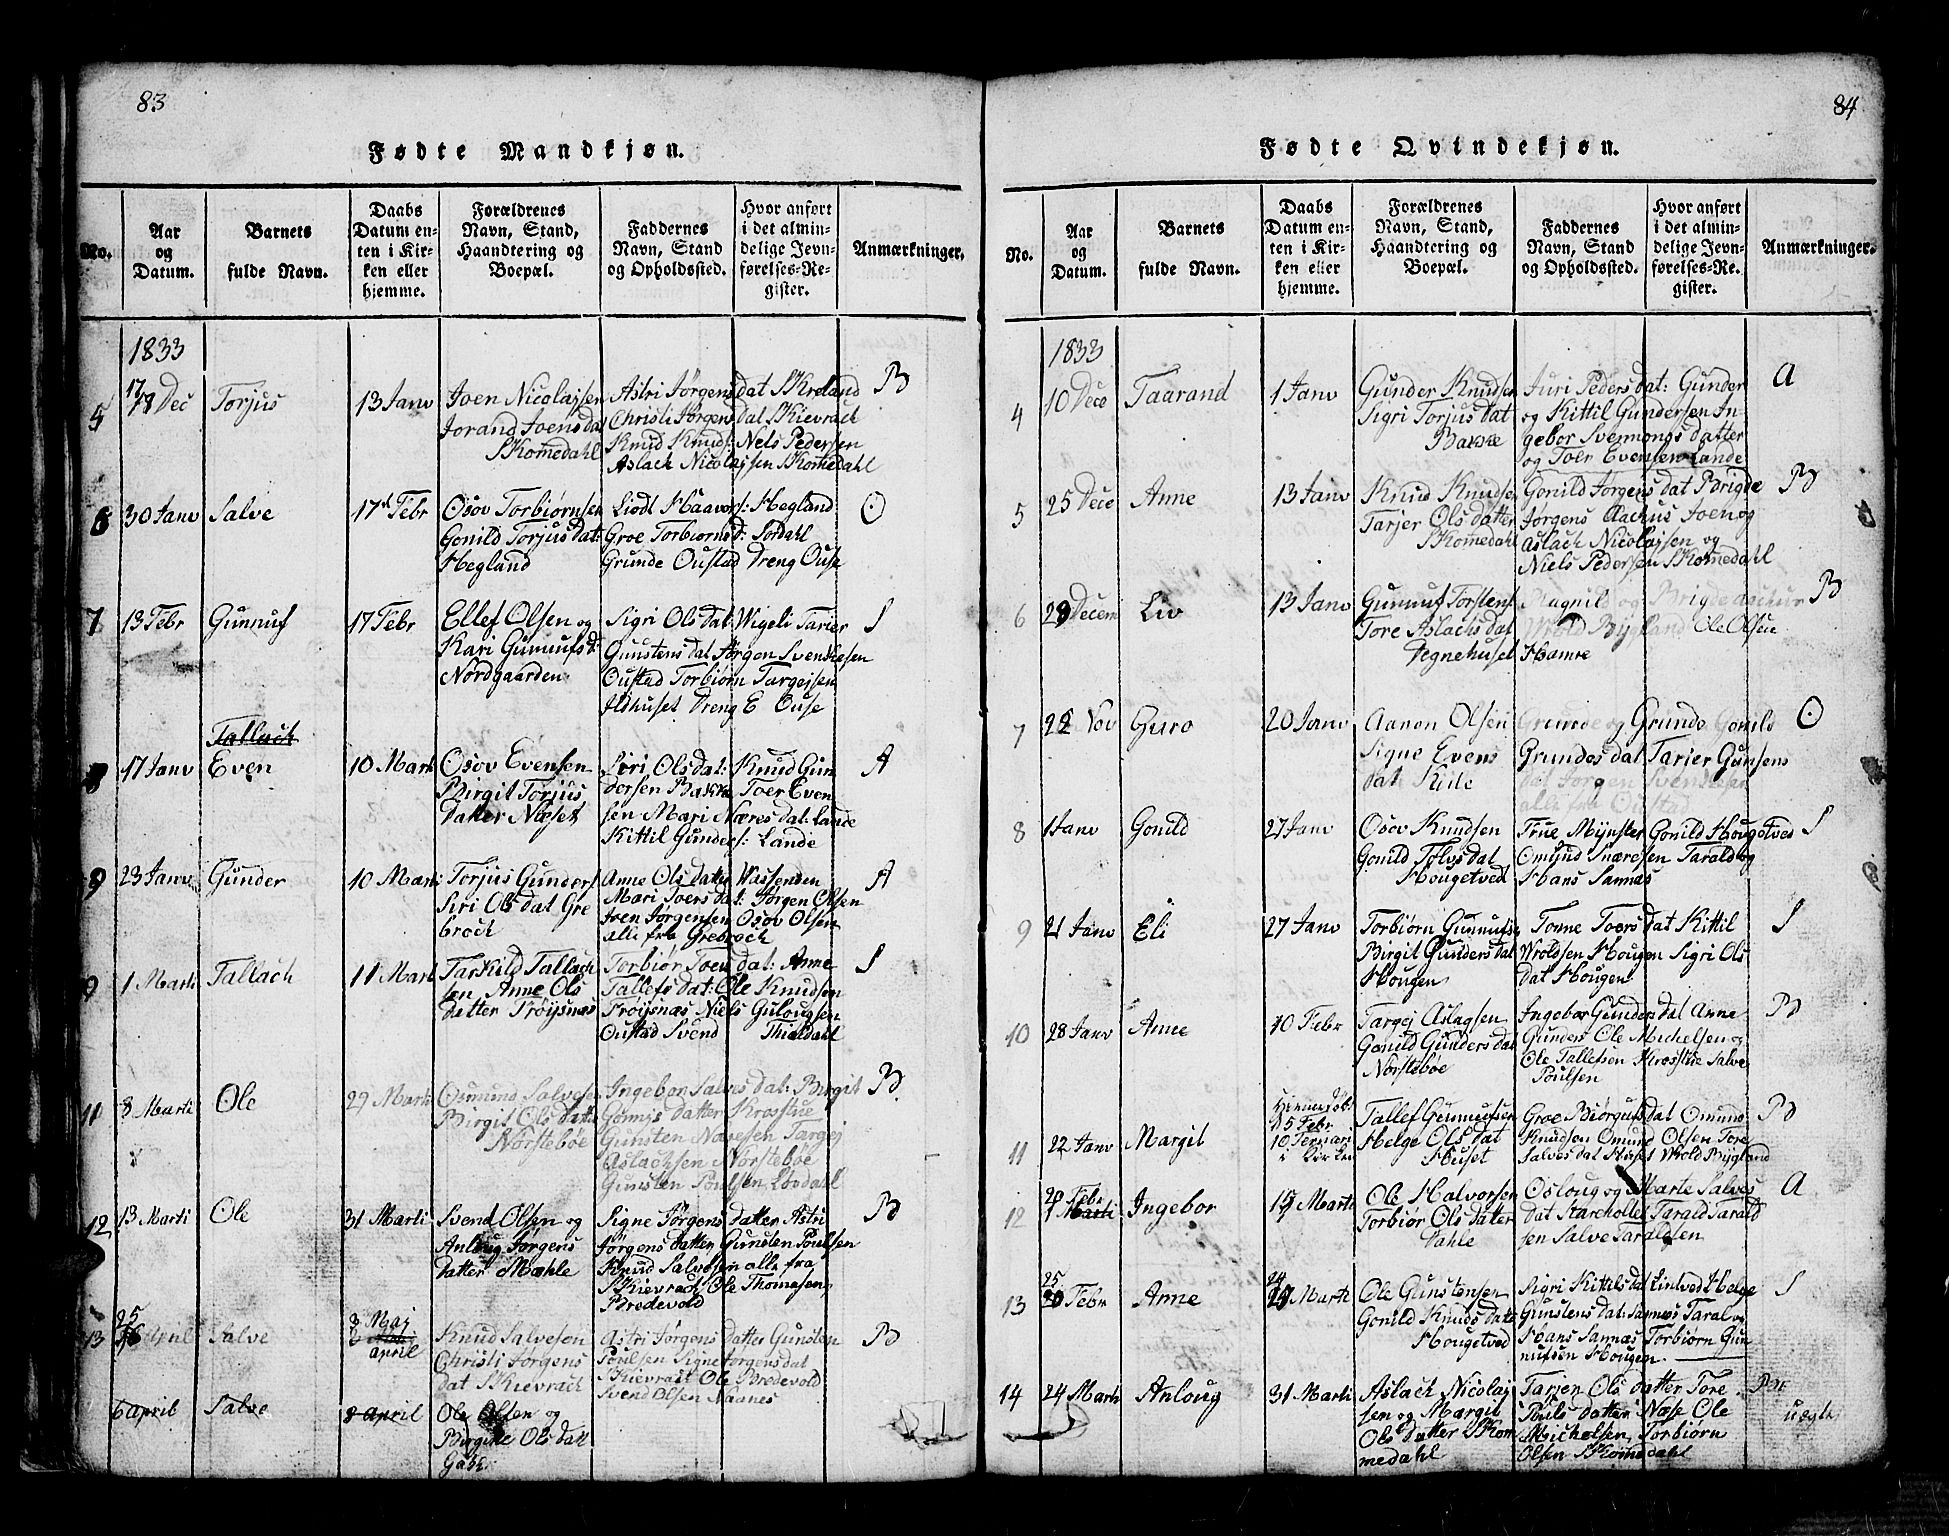 83
Fødte Mandkjøn.
No.
Aar
og
Datum.
Barnets
fulde Navn.
Daabs
Datum en-
ten i Kir-
ken eller
hjemme.
Forældrenes
Navn, Stand,
Haandtering og
Boepæl.
Faddernes
Navn, Stand
og Opholdssted.
Hvor anført
i det almin-
delige Jevn-
førelses-Re-
gister.
Anmærkninger.
1833
5
17
Dec
Torjus
13 Janv
Joen Nicolajsen
Jorand Joens da
SKomedahl
Astri Jørgens dat SKreland
Christi Jørgens dat SKievrach
Knud Knuds: Nels Pedersen
Aslach Nicolajsen SKomedahl
B
6
30 Janv
Salve
17 Febr
Osov Torbiørnsen
Gonild Torjus dat:
Hegland
Liodt Haavors: Hegland
Groe Torbiørns d: Sordahl
Grunde Oustad Dreng Ouse
O
7
13 Febr
Gunnuf
17 Febr
Ellef Olsen og
Kari Gunnufs d
Nordgaarden
Sigri Ols dat: Wigeli Tarier
Gunstens dat Jørgen Svenkesen
Oustad Torbiørn Targejsen
Ildhuset Dreng E Ouse
S
8
17 Janv
Tallach
Even
10 Mart
Osov Evensen
Birgit Torjus
Datter Næset
Siri Ols dat: Knud Gun
dersen Bakke Toer Even
sen Mari Næres dat: Lande
Kittil Gunders: Lande
A
9
23 Janv
Gunder
10 Marti
Torjus Gunders
Siri Ols dat Gre
broch
Anne Ols datter Wassenden
Mari Toers dat: Jørgen Olsen
Joen Jørgensen Osov Olsen
alle fra Grebroch
A
9
1 Marti
Tallach
11 Mart
Tarkild Tallach
sen Anne Ols
datter Frøysnæs
Torbiør Toen dat: Anne
Tallefs dat: Ole Knudsen
Frøysnæs Niels Gulougsen
Oustad Svend Thieldahl
S
11
8 Marti
Ole
29 Marti
Osmund Salvesen
Birgit Ols datte
Norstebøe
Ingebor Salves dat: Birgit
datter Krosstue
Gunsten Navesen Targej
Aslachsen Norstebøe
Gunsten Poulsen Lovdahl
B
12
13 Marti
Ole
31 Marti
Svend Olsen og
Anloug Jørgens
datter Mæhle
Signe Jørgens datter Astri
Jørgens datter Gunsten Poulsen
Knud Salvesen alle fra
SKievrach Ole Thomasen
Bredevold
B
13
25
April
Salve
3 Maj
april
Knud Salvesen
Christi Jørgens
dat SKievrach
Astri Jørgens datter Gunsten
Poulsen Signe Jorgens dat
SKievrach Ole Bredevold
Svend Olsen Naanes
B
6 april
Salve
8 April
Ole Olsen og
Birgitte Ols datt
84
Fødte Qvindekjøn.
No.
Aar
og
Datum.
Barnets
fulde Navn.
Daabs
Datum en-
ten i Kir-
ken eller
hjemme.
Forældrenes
Navn, Stand,
Haandtering og
Boepæl.
Faddernes
Navn, Stand
og Opholdssted.
Hvor anført
i det almin-
delige Jevn-
førelses-Re-
gister.
Anmærkninger.
1833
4
10 Dece
Taarand
1 Janv
Gunder Knudsen
Sigri Torjus dat
Bakke
Juri Peders dat: Gunder
og Kittil Gundersen In
gebor Svennongs datter
og Toer Evensen Lande
A
5
25 Dece
Anne
13 Janv
Knud Knudsen
Tarjer Ols datter
SKomedahl
Gonild Jorgens dat Brigde
Jørgens Aachus Joen og
Aslach Nicolajsen og
Niels Pedersen SKomedahl
B
6
28 Decem
Liv
13 Janv
Gunnuf Torstens
Tore Aslachs dat
Degnehuset
Magnild og Brigde
Wrold Bygland Ole Olsen
Hamre
B
7
22 Nov
Guro
20 Janv
Aanon Olsen
Signe Evens
dat Riile
Grunde og Grunde Gonild
Grundes dat Tarjer Gunsens
dat Jørgen Svenkesen
alle fra Oustad
O
8
1 Janv
Gonild
27 Janv
Osov Knudsen
Gonild Tolvs dat
Hougetved
True Mynster Gonild Hougetved
Omund Snaresen Tarald og
Hans Sannæs
S
9
21 Janv
Eli
27 Janv
Torbiørn Gunnufs
Birgit Gunders dat
Hougen
Tonne Toers dat Kittil
Wroldsen Hougen Sigri Ols
dat Hougen
S
10
28 Janv
Anne
10 Febr
Targej Aslagsen
Gonild Gunders dat
Norstebøe
Ingebor Gunders dat Anne
Gunders Ole Michelsen og
Ole Tallefsen Krosstue Salve
Poulsen
B
11
22 Janv
Margit
5 Febr
10
i Kirken
Tallef Gunnufsen
Helge Ols dat
Huset
Groe Biørgufs dat Omund
Knudsen Omund Olsen Tore
Salves dat Huset Wrold Bygland
B
12
20 Febr
1 Marti
Ingebor
17 Marti
Ole Halvorsen
Torbiør Ols datter
Dahle
Osloug og Marte Salves
dat Karchollet Tarald Tarald
sen Salve Taraldsen
A
13
25
Febr
Anne
24
Marti
Ole Gunstensen
Gonild Knuds datte
Hougetved
Sigri Kittils dat Lintved Helge
Gunstens dat: Sannæs Taral og
Hans Sannæs Torbiørn Gun
nufsen Hougen
S
14
24 Marti
Anloug
31 Marti
Aslach Nicolaj
sen og Margit
Ols datter SKom
medahl
Tarjer Ols datter Tore
Pouls datter Næse Ole
Michelsen Torbiørn
Olsen SKomedahl
B
uægte